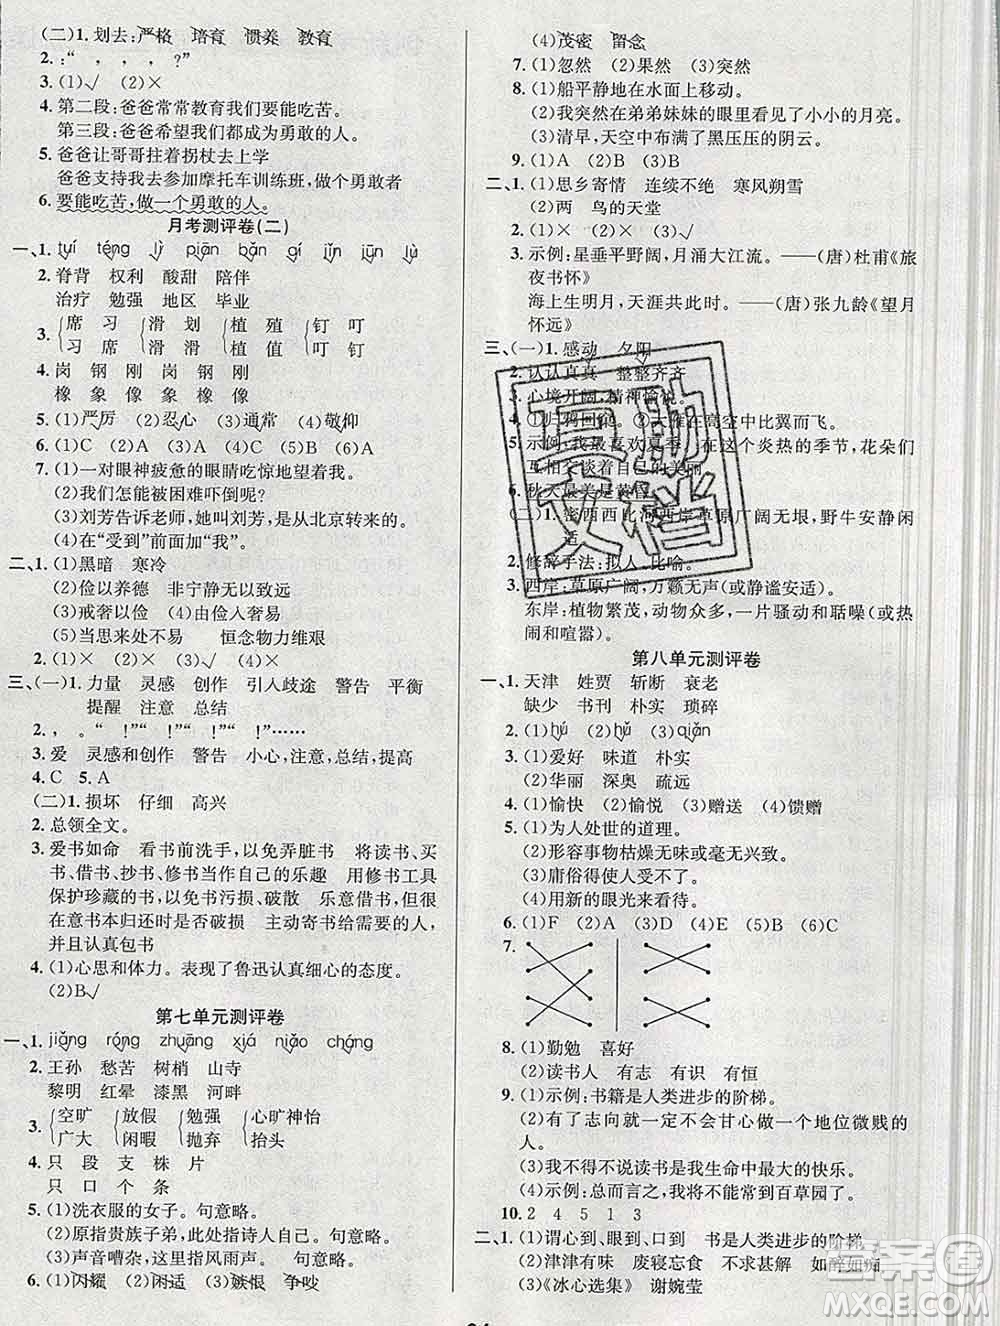 (二)1. 划去:严格 培育 惯养 教育
2. :“ , , , ?”
3. (1)√ (2)×
4. 第二段:爸爸常常教育我们要能吃苦。
第三段:爸爸希望我们做勇敢的人。
5. 爸爸让哥哥拄着拐杖去上学
爸爸支持我去参加摩托车训练班,当个勇敢者
6. 要能吃苦,做一个勇敢的人。
月考测评卷(二)
一、1. tuí téng lì piān bān gí jǐn jūn lù
2. 脊背 权利 酸甜 陪伴
治疗 勉强 地区 毕业
3. 席 习 滑 划 植 殖 钉 叮
习 席 滑 滑 植 值 叮 钉
4. 岗 钢 刚 岗 钢 刚
橡 象 像 象 橡 像
5. (1)严厉 (2)忍心 (3)通常 (4)敬仰
6. (1)C (2)A (3)B (4)C (5)A
7. (1)一对眼神疲惫的眼睛吃惊地望着我。
(2)我们怎能被困难吓倒呢?
(3)刘芳告诉老师,她叫刘芳,是从北京转来的。
(4)在“受到”前面加“我”。
二、1. (1)黑暗 寒冷
(2)俭以养德 非宁静无以致远
(3)戒奢以俭 (4)由俭入奢易
(5)当思来处不易 恒念物力维艰
2. (1)× (2)× (3)√ (4)×
三、(一)1. 力量 灵感 创作 引人歧途 警告 平衡
提醒 注意 总结
2. , 。“ !”“ !”“ !”“ !”……
3. 爱 灵感和创作 警告 小心,注意,总结,提高
4. C 5. A
(二)1. 损坏 仔细 高兴
2. 总领全文。
3. 爱书如命 看书前洗手,以免弄脏书 将读书、买
书、借书、抄书、修书当作自己的乐趣 用修书工具
保护珍藏的书,以免书污损、破散 乐意借书,但是
在意书本归还时是否破损 主动寄书给需要的人,
并且认真包书
4. (1)心思和体力。表现了鲁迅认真细心的态度。
(2)B√
第七单元测评卷
一、1. jiǎng róng zhuāng xiá niǎo chǎng
2. 王孙 愁苦 树梢 山寺
黎明 红晕 漆黑 河畔
3. 空旷 放假 勉强 心旷神怡
广大 闲暇 抛弃 抬头
4. 只 段 支 株 片
只 口 个 条
5. (1)洗衣服的女子。句意略。
(2)原指贵族子弟,此处指诗人自己。句意略。
(3)声音嘈杂,这里指风雨声。句意略。
6. (1)闪耀 (2)闲适 (3)嫉恨 争吵
(4)茂密 留念
7. (1)忽然 (2)果然 (3)突然
8. (1)船平静地在水面上移动。
(2)我突然在弟弟妹妹的眼里看见了小小的月亮。
(3)清早,天空中布满了黑压压的阴云。
9. (1)A (2)B (3)A
二、1. (1)思乡寄情 连续不绝 寒风朔雪
(2)两 鸟的天堂
2. (1)√ (2)√ (3)×
3. 示例:星垂平野阔,月涌大江流。——(唐)杜甫《旅
夜书怀》
海上生明月,天涯共此时。——(唐)张九龄《望月
怀远》
三、(一)1. 感动 夕阳
2. 认认真真 整整齐齐
3. 心境开阔,精神愉悦。
4. 大雁在高空中比翼而飞。
5. 示例:我最喜欢夏季,在这个炎热的季节,花朵们
互相交谈着自己的美丽
6. 秋天最美是黄昏
(二)1. 密西西比河西岸草原广阔无垠,野牛安静闲
适
2. 修辞手法:拟人、比喻。
3. 西岸:草原广阔,万籁无声(或静谧安适)。
东岸:植物繁茂,动物众多,一片骚动和聒噪(或热
闹和喧嚣)。
第八单元测评卷
一、1. 天津 姓贾 斩断 衰老
缺少 书刊 朴实 琐碎
2. (1)hú (2)hǔ (3)qiǎn
3. (1)爱好 味道 朴实
(2)华丽 深奥 疏远
4. (1)愉快 (2)愉悦 (3)赠送 (4)馈赠
5. (1)为人处世的道理。
(2)形容事物枯燥无味或无兴致。
(3)庸俗得使人受不了。
(4)用新的眼光来看待。
6. (1)F (2)A (3)D (4)E (5)B (6)C
7.
8. (1)勤勉 喜好
(2)读书人 有志 有识 有恒
9. (1)示例:书籍是人类进步的阶梯。
(2)有了志向就一定不会甘心做一个地位微贱的
人。
(3)我不得不说读书是我生命中最大的快乐。
(4)示例:总而言之,我将不能常到百草园了。
10. 2 4 5 1 3
二、1. (1)谓心到、眼到、口到 书是人类进步的阶梯
(2)津津有味 废寝忘食 不求甚解 如醉如痴
(3)《冰心选集》 谢婉莹
直助文档
答案圈
MXQE.COM